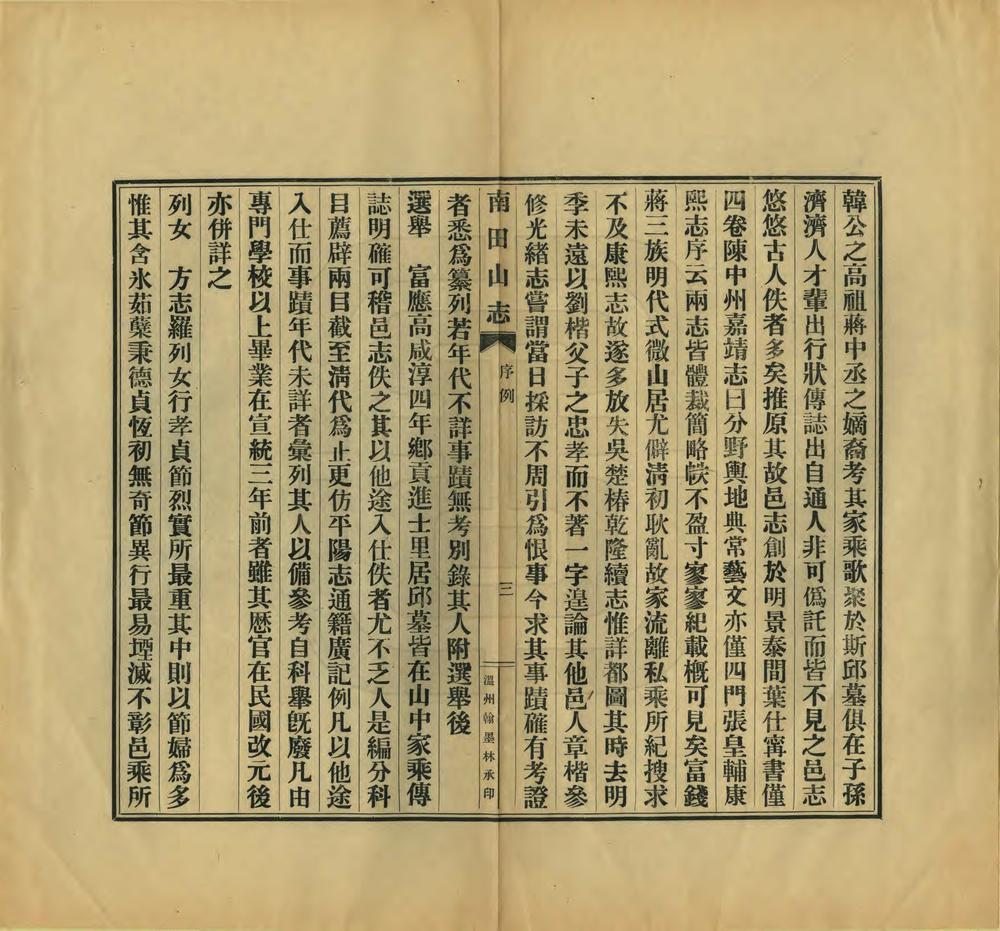 韓公之高祖蔣中丞之嫡裔考其家乘歌聚於斯邱墓俱在子孫
濟濟人才輩出行狀傳誌出自通人非可僞託而皆不見之邑志
悠悠古人佚者多矣推原其故邑志創於明景泰間葉仕寗書僅
四卷陳中州嘉靖志曰分野輿地典常藝文亦僅四門張皇輔康
熙志序云兩志皆體裁簡略帙不盈寸寥寥紀載槪可見矣富錢
蔣三族明代式微山居尤僻淸初耿亂故家流離私乘所紀搜求
不及康熙志故遂多放失吳楚椿乾隆續志惟詳都圖其時去明
季未遠以劉楷父子之忠孝而不著一字遑論其他邑人章楷參
修光緒志嘗謂當日採訪不周引爲恨事今求其事蹟確有考證
南田山志 序例 三 溫州翰墨林承印
者悉爲纂列若年代不詳事蹟無考別錄其人附選舉後
選舉 富應高咸淳四年鄉貢進士里居邱墓皆在山中家乘傳
誌明確可稽邑志佚之其以他途入仕佚者尤不乏人是編分科
目薦辟兩目截至淸代爲止更仿平陽志通籍廣記例凡以他途
入仕而事蹟年代未詳者彙列其人以備參考自科舉旣廢凡由
專門學校以上畢業在宣統三年前者雖其歷官在民國改元後
亦併詳之
列女 方志羅列女行孝貞節烈實所最重其中則以節婦爲多
惟其含氷茹蘗秉德貞恆初無奇節異行最易堙滅不彰邑乘所